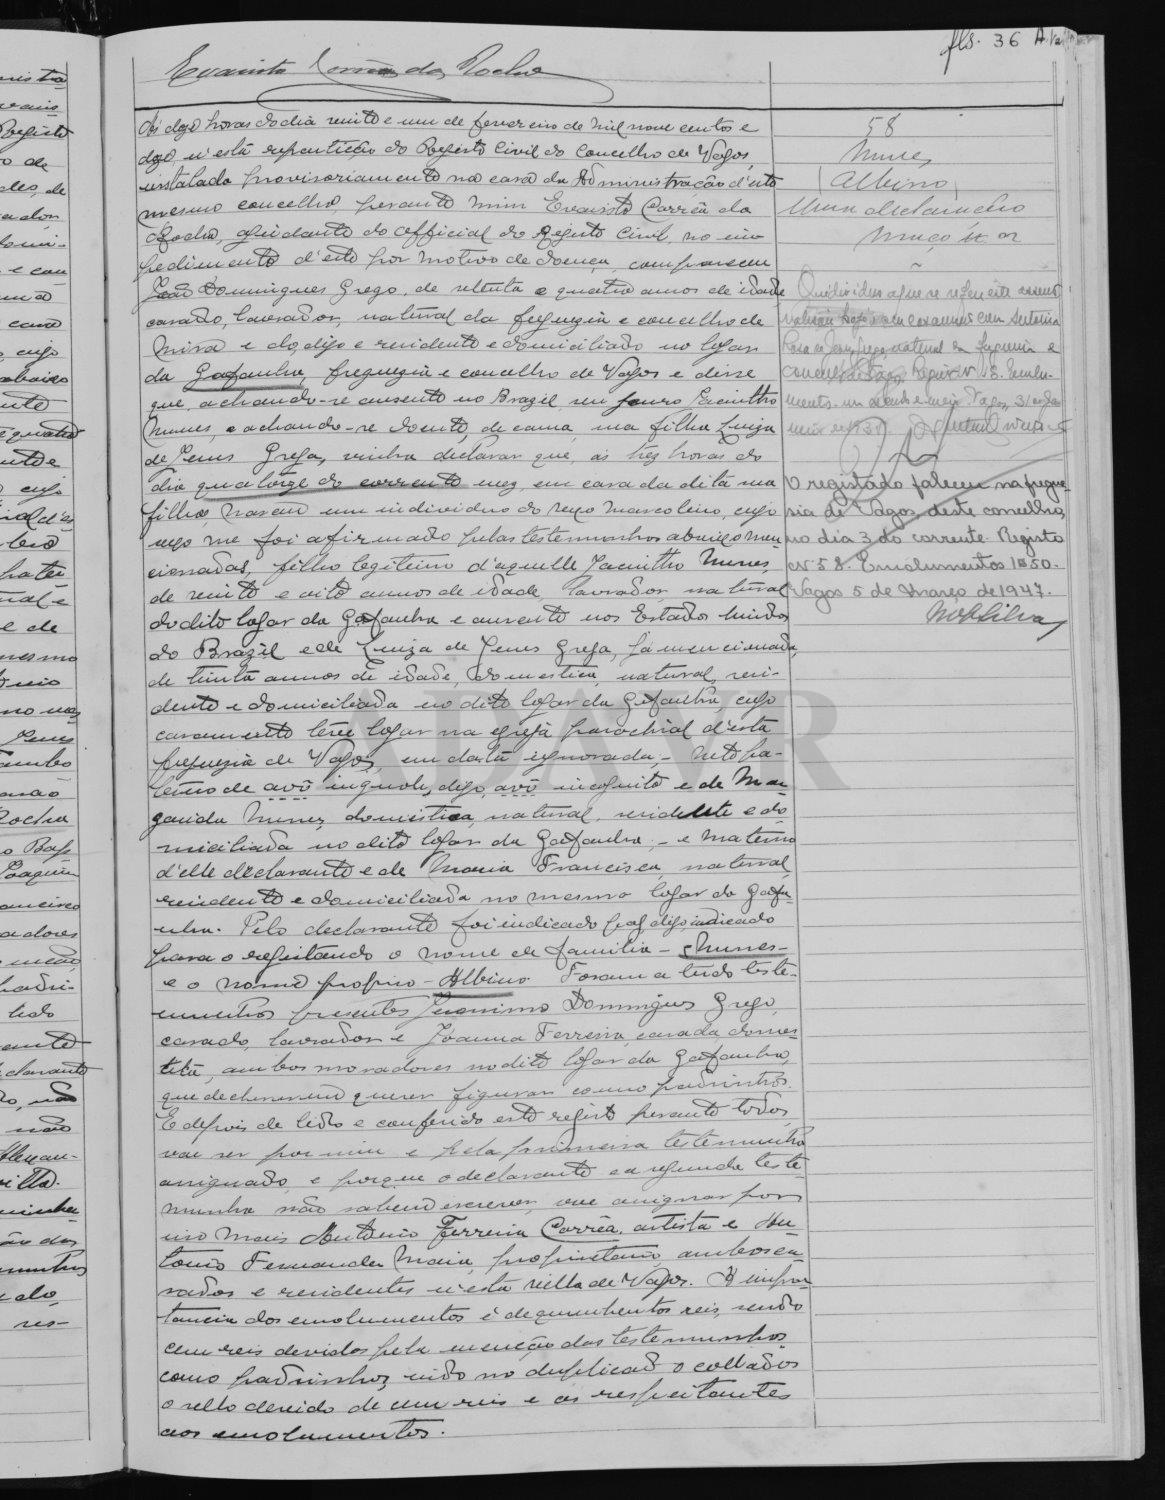 fls. 36
Evaristo Corrêa da Rocha
Ás doze horas do dia vinte e um de fevereiro de mil nove centos e
doze, n'esta repartição do Registo Civil do Concelho de Vagos,
installada provisoriamente na casa da Administração d'este
mesmo concelho, perante mim Evaristo Corrêa da
Rocha, ajudante do official do Registo Civil, no im-
pedimento d'este por motivo de doença, compareceu
João Domingues Grego, de setenta e quatro annos de idade,
casado, lavrador, natural da freguezia e concelho de
Mira e do, digo e residente e domiciliado no logar
da Gafanha, freguezia e concelho de Vagos e disse
que, achando-se ausente no Brazil, seu genro Jacintho
Nunes, e achando-se doente, de cama, sua filha Luiza
de Jesus Grega, vinha declarar que, ás trez horas do
dia quatorze do corrente mez, em casa da dita sua
filha, nasceu um individuo do sexo masculino, cujo
sexo me foi afirmado pelas testemunhas abaixo men-
cionadas, filho legitimo d'aquelle Jacintho Nunes,
de vinte e oito annos de idade, lavrador, natural
do dito logar da Gafanha e ausente nos Estados Unidos
do Brazil e de Luiza de Jesus Grega, já mencionada,
de trinta annos de idade, domestica, natural, resi-
dente e domiciliada no dito logar da Gafanha, cujo
casamento teve logar na egreja parochial d'esta
freguezia de Vagos, em data ignorada, - neto pa-
terno de avô digo, avô incognito e de Mar-
garida Nunes, domestica, natural, residente e do-
miciliada no dito logar da Gafanha, - e materno
d'elle declarante e de Maria Francisca, natural,
residente e domiciliada no mesmo logar da Gafa-
nha. Pelo declarante foi indicado digo indicado
para o registando o nome de familia - Nunes -
e o nome proprio - Albino. Foram a tudo teste-
munhas presentes Jeronimo Domingues Grego,
casado, lavrador e Joanna Ferreira, casada, domes-
tica, ambos moradores no dito logar da Gafanha,
que declararam querer figurar como padrinhos.
E depois de lido e conferido este registo perante todos,
vae ser por mim e pela primeira testemunha
assignado, e porque o declarante e a segunda teste-
munha não sabem escrever, vae assignar por
isso mais Antonio Ferreira Corrêa, artista e An-
tonio Fernandes Maia, proprietario, ambos ca-
sados e residentes n'esta villa de Vagos. A impor-
tancia dos emolumentos é de quinhentos reis, sendo
cem reis devidos pela menção das testemunhas
como padrinhos, indo no duplicado collados
o sello devido de cem reis e os respeitantes
aos emolumentos.
58
Nunes
(Albino)
O individuo a que se refere este assento
casamento com
Rosa de Jesus natural da freguesia e
concelho de Vagos. Registo Nº Emolu-
mentos um escudo e meio. Vagos, 31 de
O registado faleceu na fregue-
sia de Vagos, deste concelho,
no dia 3 do corrente. Registo
Nº 58. Emolumentos 1$50.
Vagos 5 de Março de 1947.